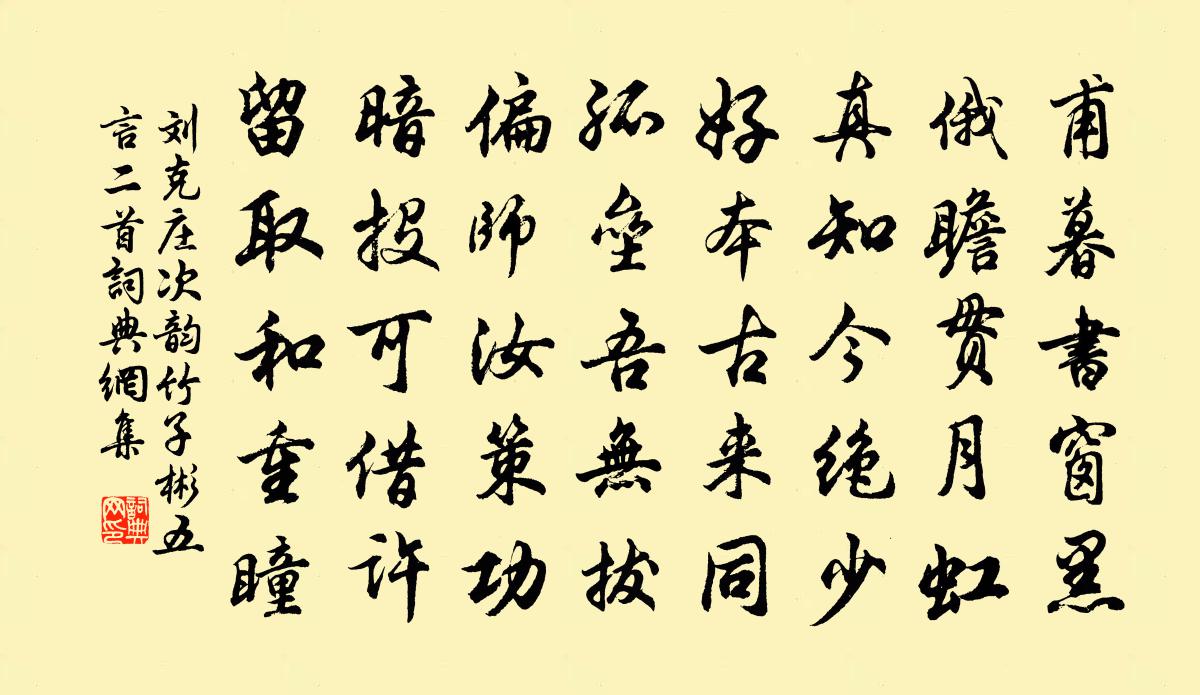 甫暮書窗黑
俄瞻贯月虹
真知今绝少
好本古来同
孤壘吾無拔
偏師汝策功
暗投可借许
留取和重瞳
刘克庄次韵竹子彬五
言二首詞典網集
詞典
网印